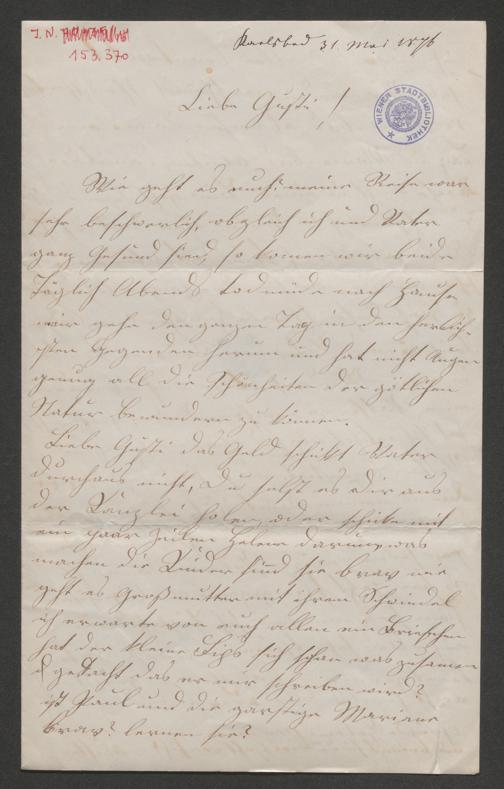 J. N.
153.370
Karlsbad 31. Mai 1876
WIENER STADTBIBLIOTHEK
Liebe Gusti!
Wie geht es euch: meine Reise war
sehr beschwerlich, obgleich ich und Vater
ganz Gesund sind, so komen wir beide
täglich Abends todmüde nach Hause
wir gehe den ganzen Tag in den herlich-
sten Gegenden herum und hat nicht Augen
genung all die Schönheiten der götlichen
Natur bewundern zu können.
Liebe Gusti das Geld schickt Vater
durchaus nicht, Du sollst es Dir aus
der Kanzlei holen, oder schicke mit
ein paar Zeilen Helene darum, was
machen die Kinder sind sie brav wie
geht es Großmutter mit ihrem Schwindel
ich erwarte von euch allen ein Briefchen
hat der kleine Lips sich schon was zusamen
gedacht das er mir schreiben wird?
ist Paul und die garstige Mariane
brav? lernen sie?